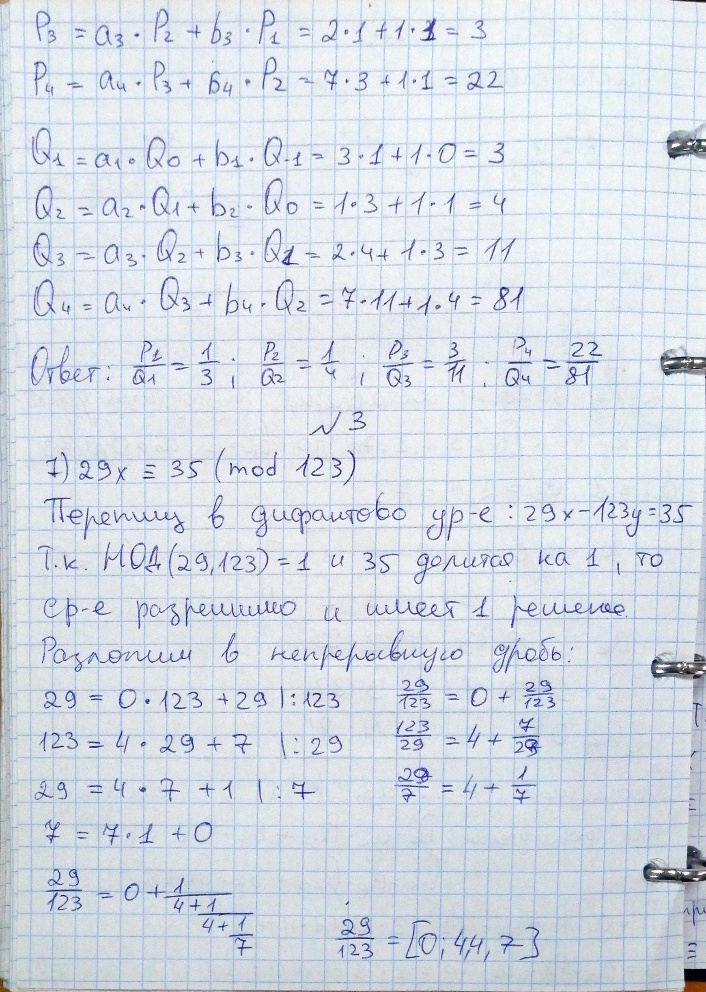 P₃ = a₃ · P₂ + b₃ · P₁ = 2·1 + 1·1 = 3
P₄ = a₄ · P₃ + b₄ · P₂ = 7·3 + 1·1 = 22
Q₁ = a₁ · Q₀ + b₁ · Q₋₁ = 3·1 + 1·0 = 3
Q₂ = a₂ · Q₁ + b₂ · Q₀ = 1·3 + 1·1 = 4
Q₃ = a₃ · Q₂ + b₃ · Q₁ = 2·4 + 1·3 = 11
Q₄ = a₄ · Q₃ + b₄ · Q₂ = 7·11 + 1·4 = 81
Ответ: P₁/Q₁ = 1/3 ; P₂/Q₂ = 1/4 ; P₃/Q₃ = 3/11 ; P₄/Q₄ = 22/81
№3
7) 29x ≡ 35 (mod 123)
Перепишу в дифантово ур-е : 29x − 123y = 35
Т.к. НОД(29,123) = 1 и 35 делится на 1, то
ср-е разрешимо и имеет 1 решение.
Разложим в непрерывную дробь:
29 = 0·123 + 29 |:123 29/123 = 0 + 29/123
123 = 4·29 + 7 |:29 123/29 = 4 + 7/29
29 = 4·7 + 1 |:7 29/7 = 4 + 1/7
7 = 7·1 + 0
29/123 = 0 + 1/(4 + 1/(4 + 1/7)) 29/123 = [0; 4,4, 7]